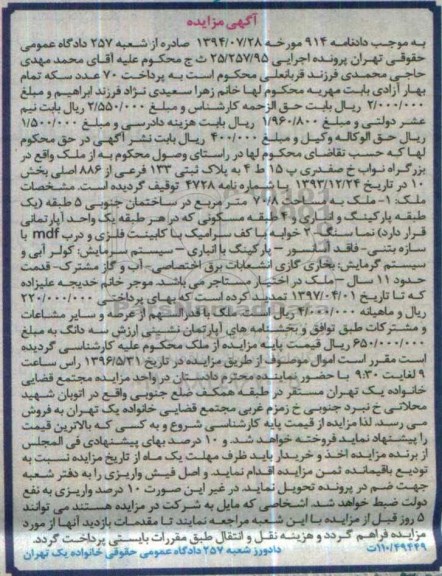 آگهی مزایده
به موجب دادنامه ۹۱۴ مورخه ۱۳۹۴/۰۷/۲۸ صادره از شعبه ۲۵۷ دادگاه عمومی
حقوقی تهران پرونده اجرایی ۲۵/۲۵۷/۹۵ ث ج محکوم علیه آقای محمد مهدی
حاجی محمدی فرزند قربانعلی محکوم است به پرداخت ۷۰ عدد سکه تمام
بهار آزادی بابت مهریه محکوم لها خانم زهرا سعیدی نژاد فرزند ابراهیم و مبلغ
۲/۰۰۰/۰۰۰ ریال بابت حق الزحمه کارشناس و مبلغ ۲/۵۵۰/۰۰۰ ریال بابت نیم
عشر دولتی و مبلغ ۱/۹۶۰/۸۰۰ ریال بابت هزینه دادرسی و مبلغ ۱/۵۰۰/۰۰۰
ریال حق الوکاله وکیل و مبلغ ۴۰۰/۰۰۰ ریال بابت نشر آگهی در حق محکوم
لها که حسب تقاضای محکوم لها در راستای وصول محکوم به از ملک واقع در
بزرگراه نواب خ صفدری پ ۱۵ ط ۴ به پلاک ثبتی ۱۳۳ فرعی از ۸۸۶ اصلی بخش
۱۰ در تاریخ ۱۳۹۳/۱۲/۲۴ با شماره نامه ۴۷۲۸ توقیف گردیده است. مشخصات
ملک: ۱- ملک به مساحت ۷۰/۸ متر مربع در ساختمان جنوبی ۵ طبقه (یک
طبقه پارکینگ و انباری و ۴ طبقه مسکونی که در هر طبقه یک واحد آپارتمانی
قرار دارد) نما سنگ - ۲ خوابه با کف سرامیک با کابینت فلزی و درب mdf با
سازه بتنی - فاقد آسانسور - پارکینگ با انباری - سیستم سرمایش: کولر آبی و
سیستم گرمایش: بخاری گازی انشعابات برق اختصاصی - آب و گاز مشترک - قدمت
حدود ۱۱ سال - ملک در اختیار مستاجر می باشد. موجر خانم خدیجه علیزاده
که تا تاریخ ۱۳۹۷/۰۴/۰۱ تمدید کرده است که بهای پرداختی ۲۲۰/۰۰۰/۰۰۰
ریال و ماهیانه ۴/۰۰۰/۰۰۰ ریال کل ملک با قدرالسهم از عرصه و سایر مشاعات
و مشترکات طبق توافق و بخشنامه های آپارتمان نشینی ارزش سه دانگ به مبلغ
۶۵۰/۰۰۰/۰۰۰ ریال قیمت پایه مزایده از ملک محکوم علیه کارشناسی گردیده
است مقرر است اموال موصوف از طریق مزایده در تاریخ ۱۳۹۶/۵/۳۱ راس ساعت
۹ لغایت ۹:۳۰ با حضور نماینده محترم دادستان در واحد مزایده مجتمع قضایی
خانواده یک تهران مستقر در طبقه همکف ضلع جنوبی واقع در اتوبان شهید
محلاتی خ نبرد جنوبی خ زمزم غربی مجتمع قضایی خانواده یک تهران به فروش
می رسد. لذا مزایده از قیمت پایه کارشناسی شروع و به کسی که بالاترین قیمت
را پیشنهاد نماید فروخته خواهد شد. و ۱۰ درصد بهای پیشنهادی فی المجلس
از برنده مزایده اخذ و خریدار باید ظرف مهلت یک ماه از تاریخ مزایده نسبت به
تودیع باقیمانده ثمن مزایده اقدام نماید و اصل فیش واریزی را به دفتر شعبه
جهت ضم در پرونده تحویل نماید. در غیر این صورت ۱۰ درصد واریزی به نفع
دولت ضبط خواهد شد. اشخاصی که مایل به شرکت در مزایده هستند می توانند
۵ روز قبل از مزایده با این شعبه مراجعه نمایند تا مقدمات بازدید آنها از مورد
مزایده فراهم گردد و هزینه نقل و انتقال طبق مقررات بایستی پرداخت گردد.
۱۱۰/۴۹۴۴۹ت دادورز شعبه ۲۵۷ دادگاه عمومی حقوقی خانواده یک تهران